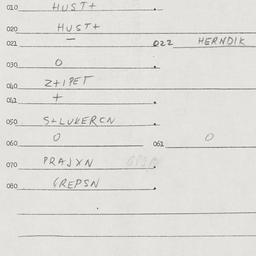 010 HUST+
020 HUST+
021 — 022 HERNDIK
030 0
040 Z+IPET
041 +
050 S+LUKERCN
060 0 061 0
070 PRAJXN
080 GREPSN